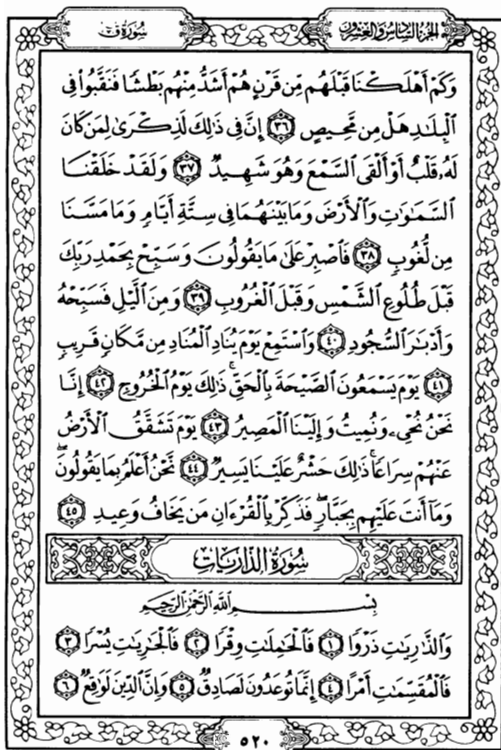 الجزء السادس والعشرون
سورة ق
وَكَمْ أَهْلَكْنَا قَبْلَهُم مِّن قَرْنٍ هُمْ أَشَدُّ مِنْهُم بَطْشًا فَنَقَّبُوا۟ فِى
ٱلْبِلَـٰدِ هَلْ مِن مَّحِيصٍ ٣٦ إِنَّ فِى ذَٰلِكَ لَذِكْرَىٰ لِمَن كَانَ
لَهُۥ قَلْبٌ أَوْ أَلْقَى ٱلسَّمْعَ وَهُوَ شَهِيدٌ ٣٧ وَلَقَدْ خَلَقْنَا
ٱلسَّمَـٰوَٰتِ وَٱلْأَرْضَ وَمَا بَيْنَهُمَا فِى سِتَّةِ أَيَّامٍ وَمَا مَسَّنَا
مِن لُّغُوبٍ ٣٨ فَٱصْبِرْ عَلَىٰ مَا يَقُولُونَ وَسَبِّحْ بِحَمْدِ رَبِّكَ
قَبْلَ طُلُوعِ ٱلشَّمْسِ وَقَبْلَ ٱلْغُرُوبِ ٣٩ وَمِنَ ٱلَّيْلِ فَسَبِّحْهُ
وَأَدْبَـٰرَ ٱلسُّجُودِ ٤٠ وَٱسْتَمِعْ يَوْمَ يُنَادِ ٱلْمُنَادِ مِن مَّكَانٍ قَرِيبٍ
٤١ يَوْمَ يَسْمَعُونَ ٱلصَّيْحَةَ بِٱلْحَقِّ ۚ ذَٰلِكَ يَوْمُ ٱلْخُرُوجِ ٤٢ إِنَّا
نَحْنُ نُحْىِۦ وَنُمِيتُ وَإِلَيْنَا ٱلْمَصِيرُ ٤٣ يَوْمَ تَشَقَّقُ ٱلْأَرْضُ
عَنْهُمْ سِرَاعًا ۚ ذَٰلِكَ حَشْرٌ عَلَيْنَا يَسِيرٌ ٤٤ نَّحْنُ أَعْلَمُ بِمَا يَقُولُونَ ۖ
وَمَآ أَنتَ عَلَيْهِم بِجَبَّارٍ ۖ فَذَكِّرْ بِٱلْقُرْءَانِ مَن يَخَافُ وَعِيدِ ٤٥
سورة الذاريات
بِسْمِ ٱللَّهِ ٱلرَّحْمَـٰنِ ٱلرَّحِيمِ
وَٱلذَّٰرِيَـٰتِ ذَرْوًا ١ فَٱلْحَـٰمِلَـٰتِ وِقْرًا ٢ فَٱلْجَـٰرِيَـٰتِ يُسْرًا ٣
فَٱلْمُقَسِّمَـٰتِ أَمْرًا ٤ إِنَّمَا تُوعَدُونَ لَصَادِقٌ ٥ وَإِنَّ ٱلدِّينَ لَوَٰقِعٌ ٦
٥٢٠